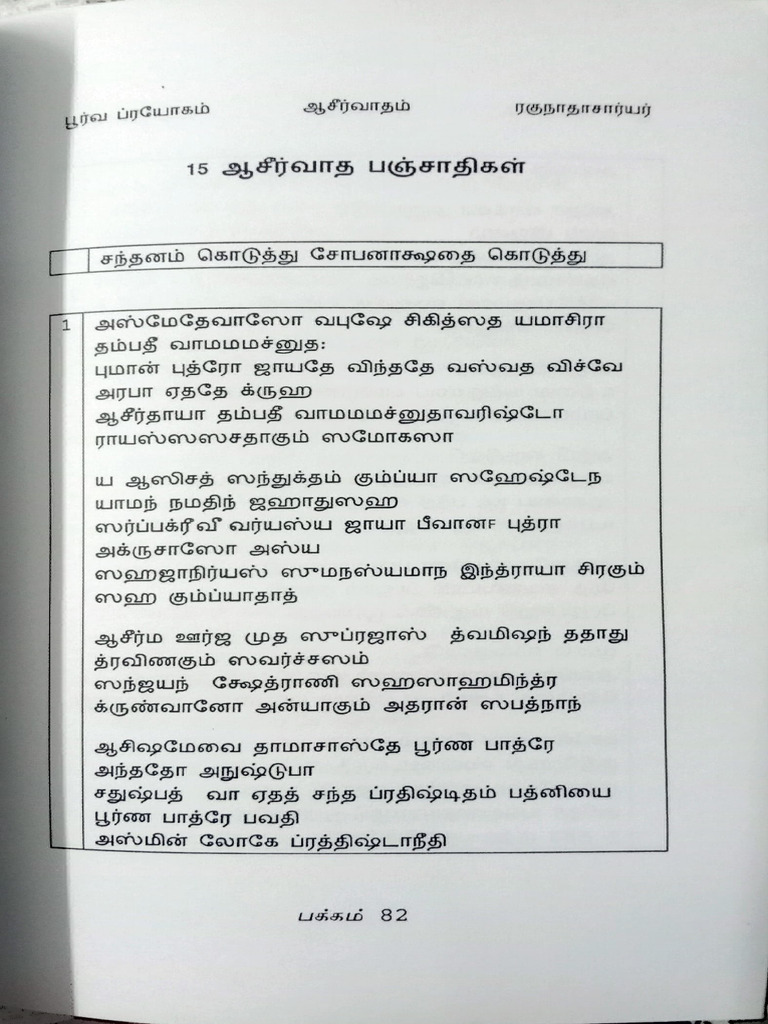 பூர்வ ப்ரயோகம் ஆசீர்வாதம் ரகுநாதாசார்யர்
15 ஆசீர்வாத பஞ்சாதிகள்
சந்தனம் கொடுத்து சோபனாக்ஷதை கொடுத்து
1 அஸ்மேதேவாஸோ வபுஷே சிகித்ஸத யமாசிரா
தம்பதீ வாமமமச்னுத:
புமான் புத்ரோ ஜாயதே விந்ததே வஸ்வத விச்வே
அரபா ஏததே க்ருஹ
ஆசீர்தாயா தம்பதீ வாமமமச்னுதாவரிஷ்டோ
ராயஸ்ஸஸசதாகும் ஸமோகஸா
ய ஆஸிசத் ஸந்துக்தம் கும்ப்யா ஸஹேஷ்டேந
யாமந் நமதிந் ஜஹாதுஸஹ
ஸர்ப்பக்ரீவீ வர்யஸ்ய ஜாயா பீவானF புத்ரா
அக்ருசாஸோ அஸ்ய
ஸஹஜாநிர்யஸ் ஸுமநஸ்யமாந இந்த்ராயா சிரகும்
ஸஹ கும்ப்யாதாத்
ஆசீர்ம ஊர்ஜ முத ஸுப்ரஜாஸ் த்வமிஷந் ததாது
த்ரவிணகும் ஸவர்ச்சஸம்
ஸந்ஜயந் க்ஷேத்ராணி ஸஹஸாஹமிந்த்ர
க்ருண்வானோ அன்யாகும் அதரான் ஸபத்நாந்
ஆசிஷமேவை தாமாசாஸ்தே பூர்ண பாத்ரே
அந்ததோ அநுஷ்டுபா
சதுஷ்பத் வா ஏதத் சந்த ப்ரதிஷ்டிதம் பத்னியை
பூர்ண பாத்ரே பவதி
அஸ்மின் லோகே ப்ரத்திஷ்டாநீதி
பக்கம் 82